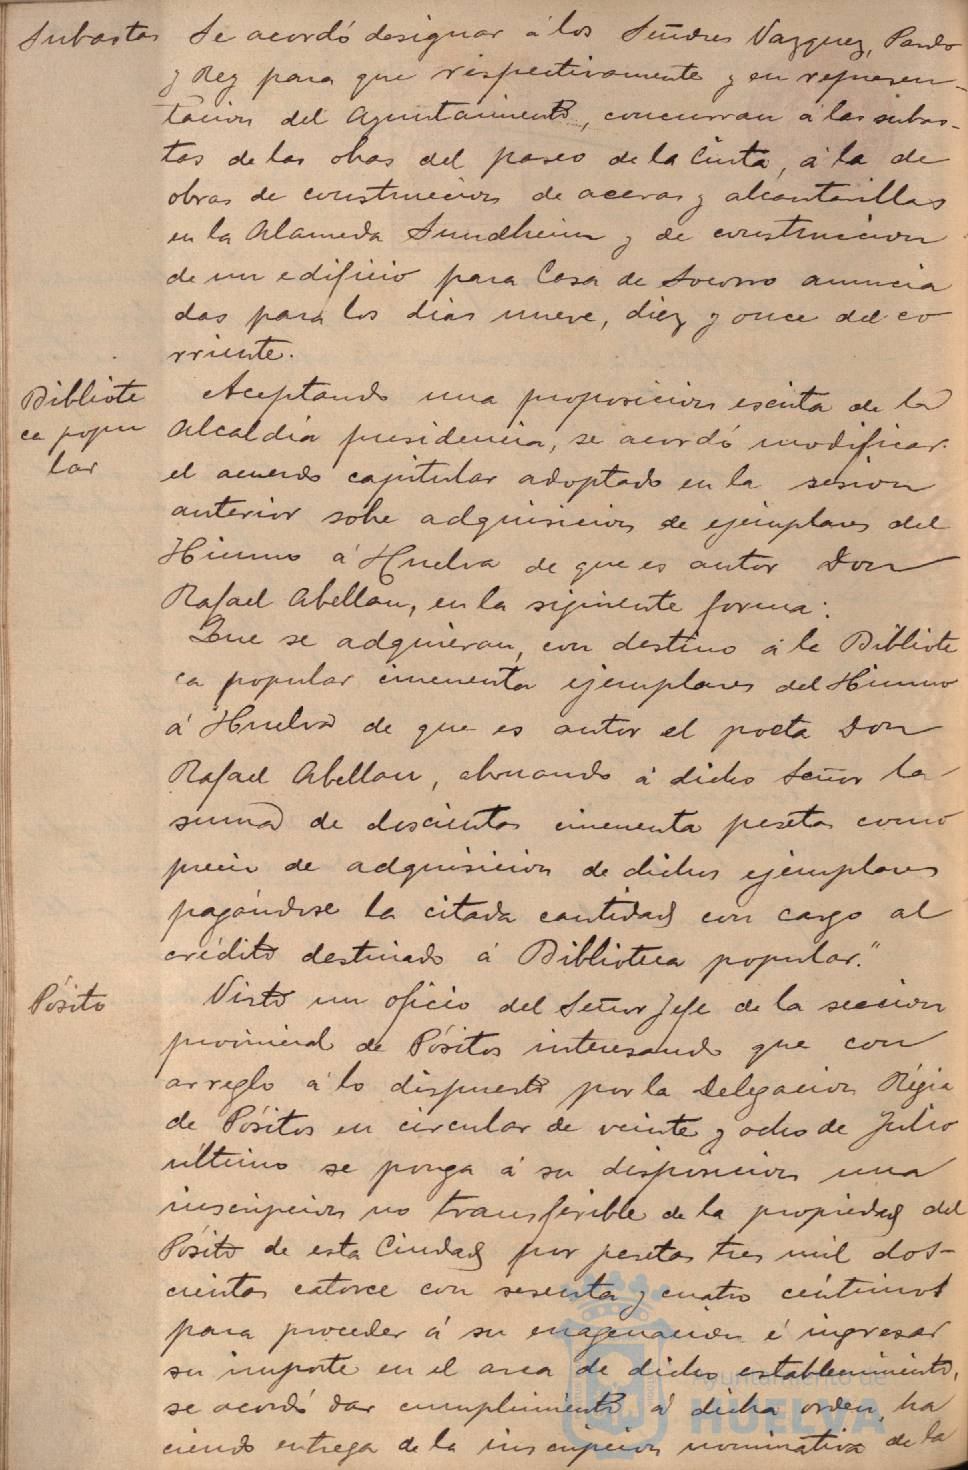 Subastas
Se acordó designar á los Señores Vazquez, Pardo
y Rey para que respectivamente y en represen-
tacion del Ayuntamiento, concurran á las subas-
tas de las obas del paseo de la Cinta, á la de
obras de construccion de aceras y alcantarillas
en la Alameda Sundheim y de construccion
de un edificio para Casa de Socorro anuncia
das para los dias nueve, diez y once del co
rriente.
Bibliote
ca popu
lar
Aceptando una proposicion escrita de la
Alcaldia presidencia, se acordó modificar
el acuerdo capitular adoptado en la sesion
anterior sobe adquisicion de ejemplares del
Himno á Huelva de que es autor Don
Rafael Abellan, en la siguiente forma:
Que se adquieran, con destino á la Bibliote
ca popular cincuenta ejemplares del Himno
á Huelva de que es autor el poeta Don
Rafael Abellan, abonando á dicho Señor la
suma de doscientas cincuenta pesetas como
precio de adquisicion de dichos ejemplares
pagándose la citada cantidad con cargo al
crédito destinado á Biblioteca popular."
Pósito
Visto un oficio del Señor Jefe de la seccion
provincial de Pósitos interesando que con
arreglo á lo dispuesto por la Delegacion Régia
de Pósitos en circular de veinte y ocho de Julio
último se ponga á su disposicion una
inscripcion no transferible de la propiedad del
Pósito de esta Ciudad por pesetas tres mil dos-
cientas catorce con sesenta y cuatro céntimos
para proceder á su enagenacion é ingresar
su importe en el arca de dicho establecimiento,
se acordó dar cumplimiento á dicha orden, ha
ciendo entrega de la inscripcion nominativa de la
Ayuntamiento de
HUELVA